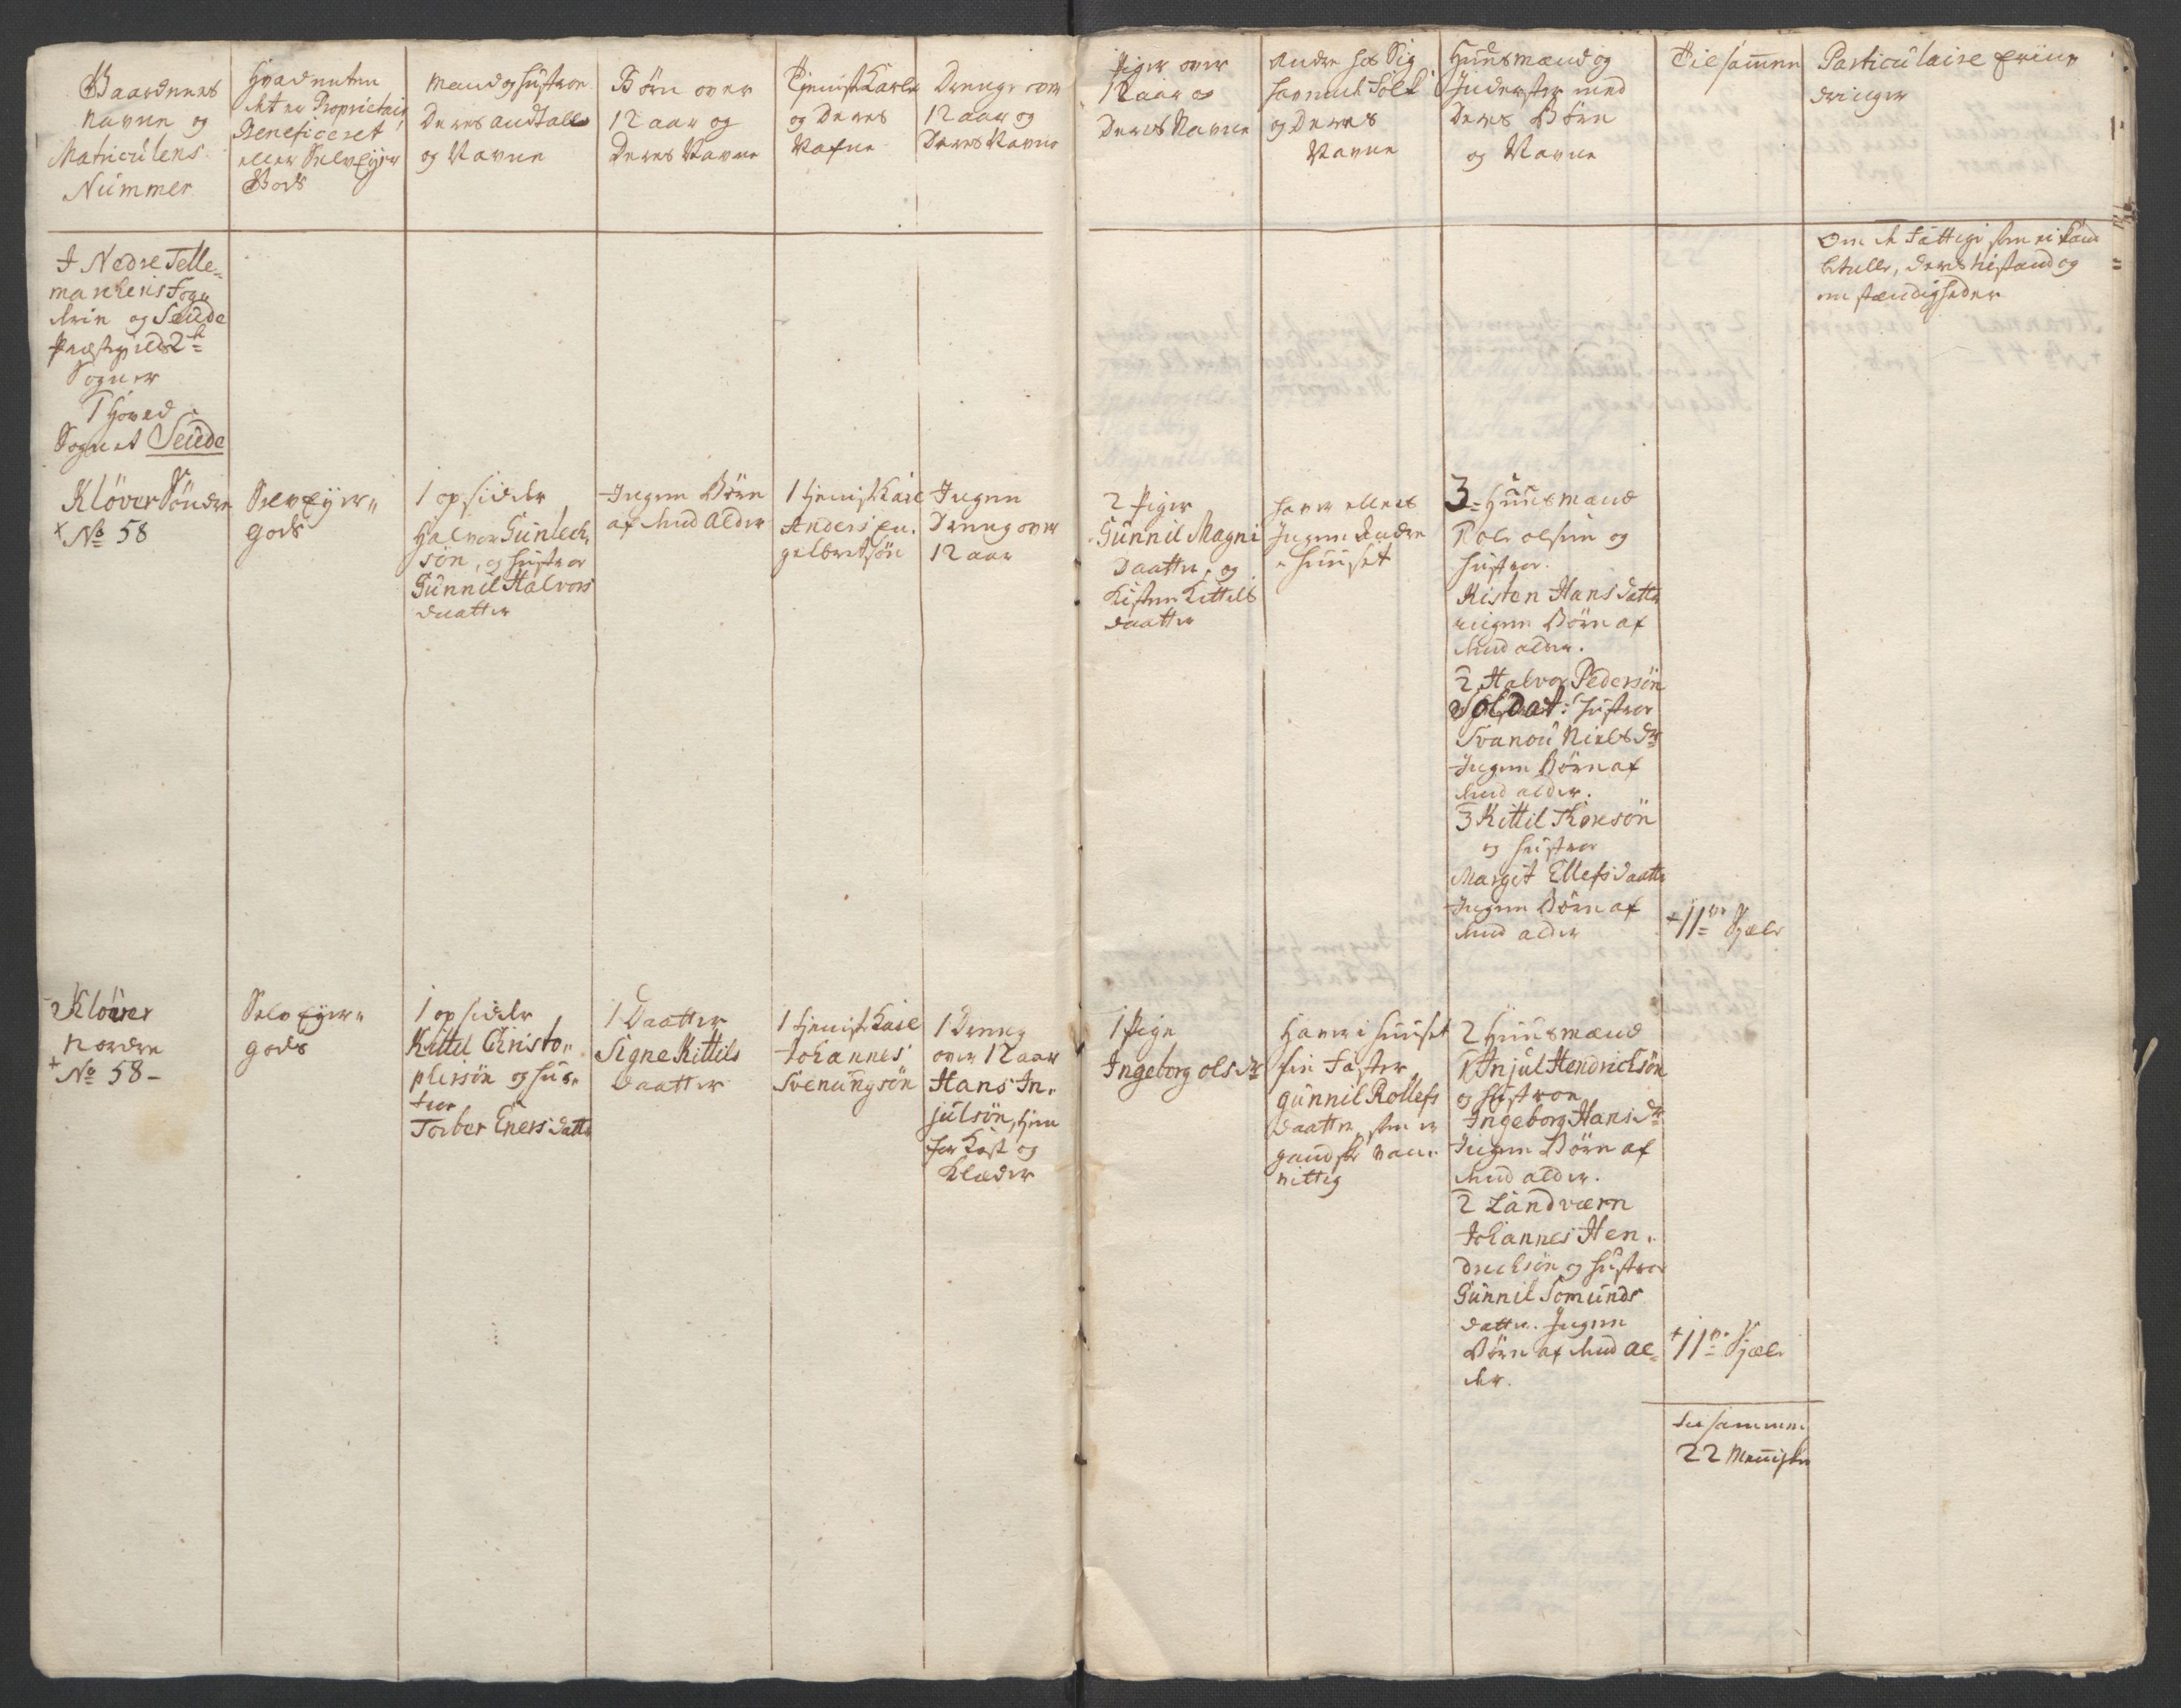 Gaardenes
Navne og
Matriculens
Nummer
Hvad enten
det er Proprietair
Beneficeret
eller Selvejer
Gods
Mand og Hustroe
Deres Andtall
og Navne
Børn over
12 aar og
Deres Navne
Tieniste Karle
og Deres
Nafne
Drenge over
12 aar og
Deres Navne
Piger over
12 aar og
Deres Navne
Andre hos Sig
havende Folk
og Deres
Navne
Huusmænd og
Inderster med
Deres Børn
og Navne
Tilsam̅en
Particulaire Erin
dringer
I Nedre Telle-
marckens Fogu
derie og Seude
Præstegield 2de
Sogner
I Hoved
Sognet Seude
Om de Fattige som ei kand
betalle, deres tilstand og
omstændigheder
Kløver Søndre
x No 58
Selvejer"
gods
1 opsidder
Halvor Gunlech
søn, og hustroe
Gunnil Halvors
daatter
Ingen Børn
af den alder
1 tieniste Karl
Anders En-
gelbretsøn
Ingen
Dreng over
12 aar
2 Piger
Gunnil Magni
Daatter, og
Kisten Kittels
daatter
haver ellers
Ingen Andre
i Huuset
3 Huusmænd
Role olsen og
hustroe.
Kisten Hans datter
ingen Børn af
den alder.
2 Halvor Pedersøn
Soldat: hustroe
Svanou Niels Dr
Ingen Børn af
den alder.
3 Kittil Toresøn
og hustroe
Margit Ellefs daatter
Ingen Børn af
den alder
+ 11ve Siæle
Kløver
Nordre
+ No 58 -
Selvejer"
gods
1 opsidder
Kittil Christo"
phersøn og hus-
troe
Torber Eners datter
1 Daatter
Signe Kittils
daatter
1 tieniste Karl
Johannes
Svenungsøn
1 Dreng
over 12 aar
Hans In-
julsøn, tien
for Kost og
Klæder
1 Pige
Ingeborg ols Dr
Haver i huuset
sin Faster
gunnil Rollefs
daatter, som er
gandske van-
vittig
2 Huusmænd
1 Injul Hendrichsøn
og Hustroe
Ingeborg Hans Dr
Ingen Børn af
den alder.
2 Landværn
Johannes Hen-
drichsøn og hustroe
Gunnil Somunds
datter. Ingen
Børn af den al-
der.
+ 11ve Siæle
til sammen
22 Mennisker